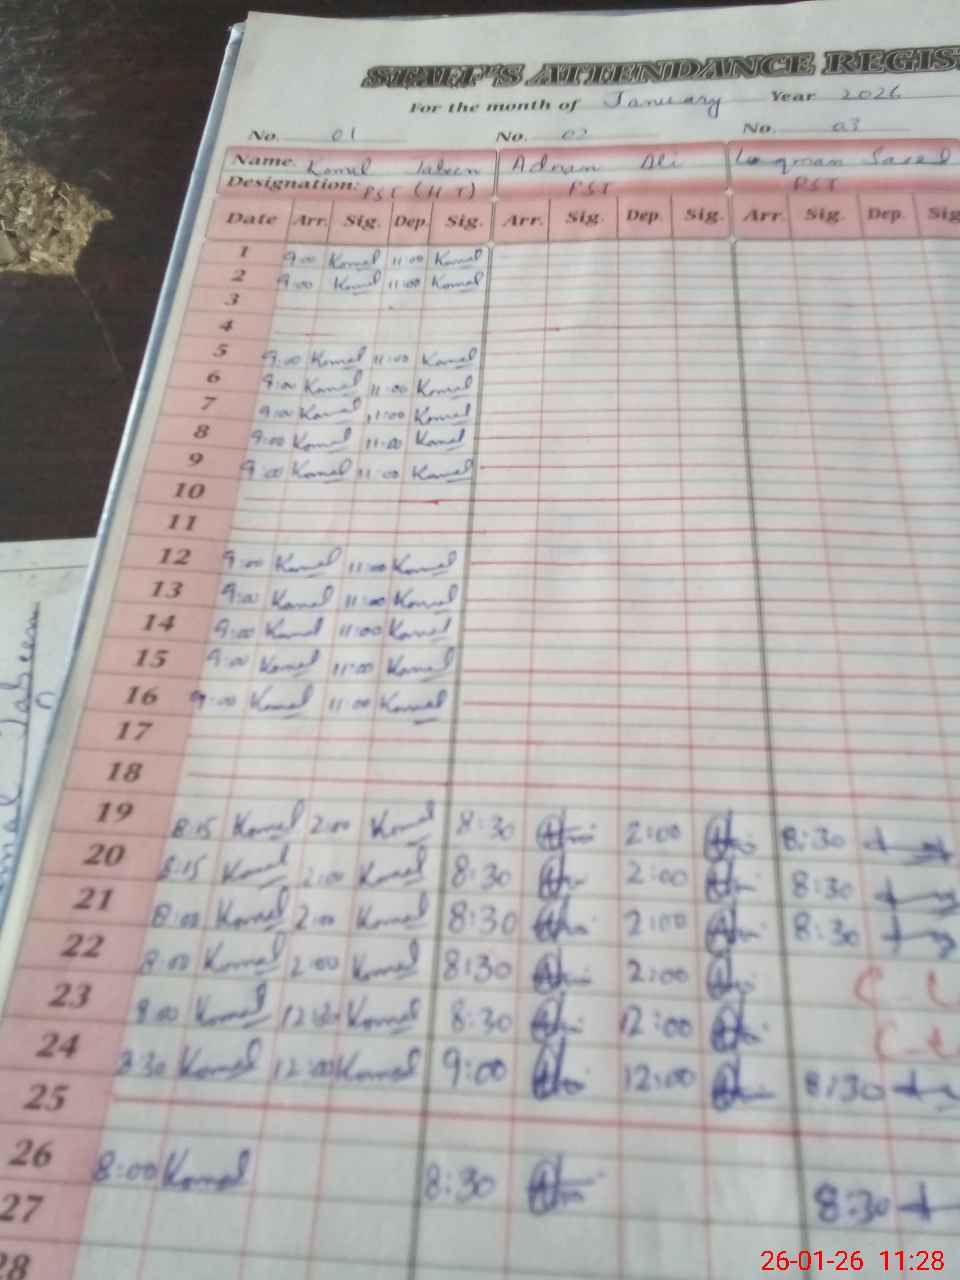 STAFF'S ATTENDANCE REGIS
For the month of January Year 2026
No. 01 No. 02 No. 03
Name. Komal Jabeen Adnan Ali Luqman Saeed
Designation: PST (H T) PST PST
Date Arr. Sig. Dep. Sig. Arr. Sig. Dep. Sig. Arr. Sig. Dep. Sig
1 9:00 Komal 11:00 Komal
2 9:00 Komal 11:00 Komal
3
4
5 9:00 Komal 11:00 Komal
6 9:00 Komal 11:00 Komal
7 9:00 Komal 11:00 Komal
8 9:00 Komal 11:00 Komal
9 9:00 Komal 11:00 Komal
10
11
12 9:00 Komal 11:00 Komal
13 9:00 Komal 11:00 Komal
14 9:00 Komal 11:00 Komal
15 9:00 Komal 11:00 Komal
16 9:00 Komal 11:00 Komal
17
18
19 8:15 Komal 2:00 Komal 8:30 2:00 8:30
20 8:15 Komal 2:00 Komal 8:30 2:00 8:30
21 8:00 Komal 2:00 Komal 8:30 2:00 8:30
22 8:00 Komal 2:00 Komal 8:30 2:00 C - L
23 8:00 Komal 12:00 Komal 8:30 12:00 C - L
24 8:30 Komal 12:00 Komal 9:00 12:00 8:30
25
26 8:00 Komal 8:30 8:30
27
28
Jabeen
26-01-26 11:28